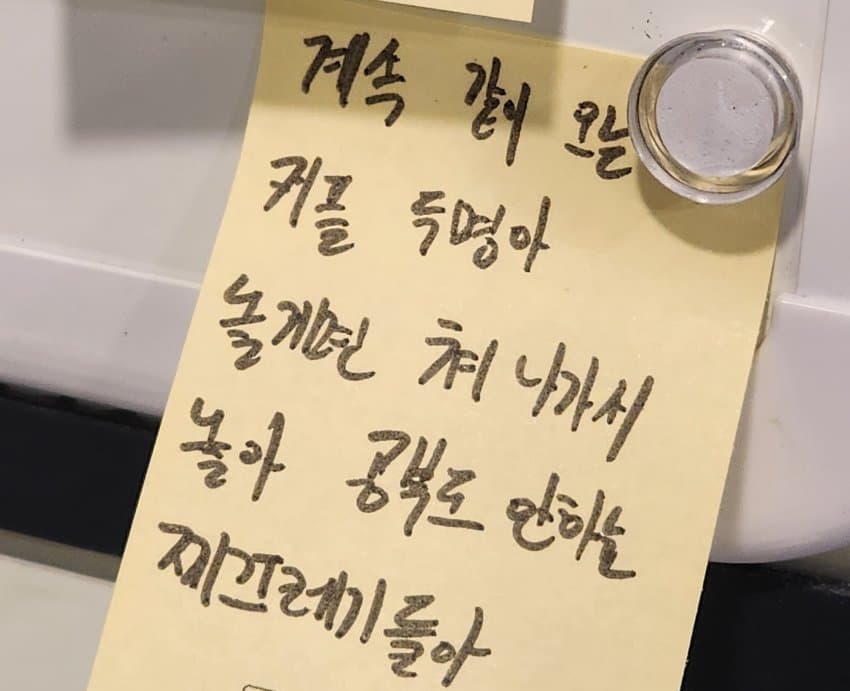 계속 같이 오는
커플 두명아
놀거면 쳐 나가서
놀아 공부도 안하는
찌끄레기들아